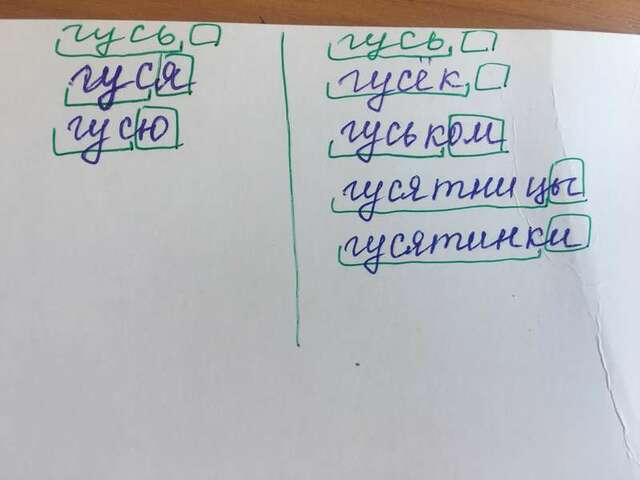 гусь
гуся
гусю
гусь
гусёк
гуськом
гусятницы
гусятинки